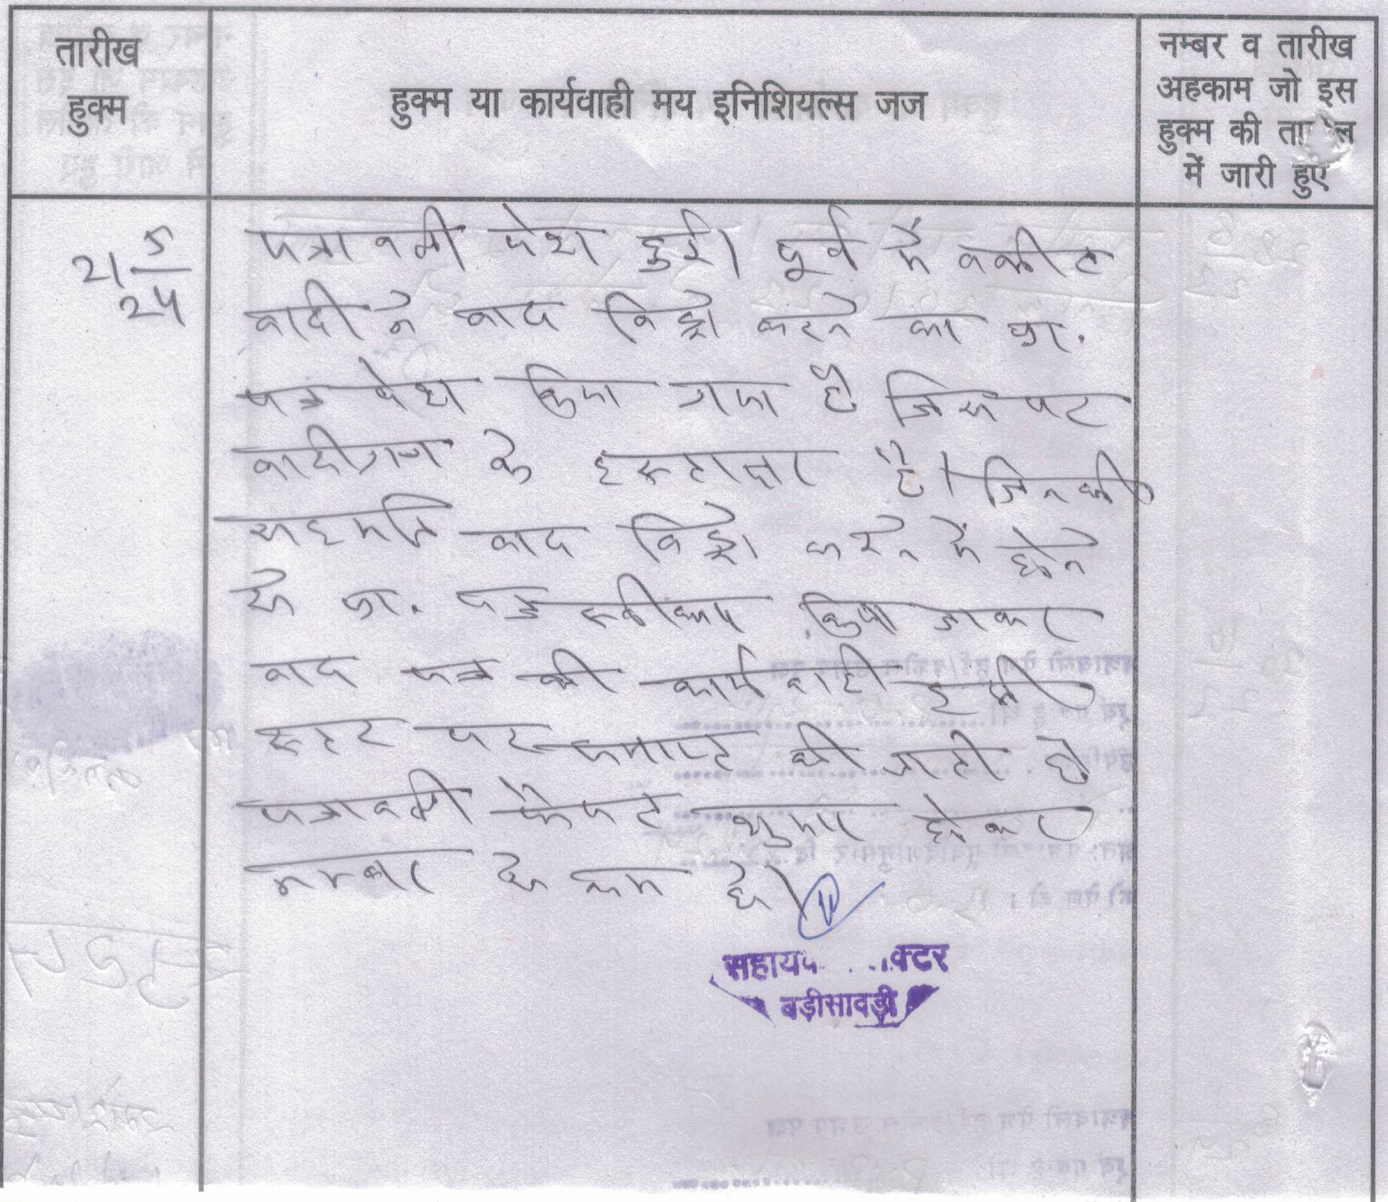 तारीख
हुक्म
हुक्म या कार्यवाही मय इनिशियल्स जज
नम्बर व तारीख
अहकाम जो इस
हुक्म की
में जारी हुए
21 5/24
पत्रावली पेश हुई। पूर्व में वकील
वादी ने वाद विड्रो करने का प्रा.
पत्र पेश किया गया है जिस पर
वादीगण के हस्ताक्षर है। जिनकी
सहमति वाद विड्रो करने में होने
से प्रा. पत्र स्वीकार किया जाकर
वाद पत्र की कार्यवाही इसी
स्तर पर समाप्त की जाती है
पत्रावली फैसल शुमार होकर
नम्बर से कम हो।
बड़ीसादड़ी